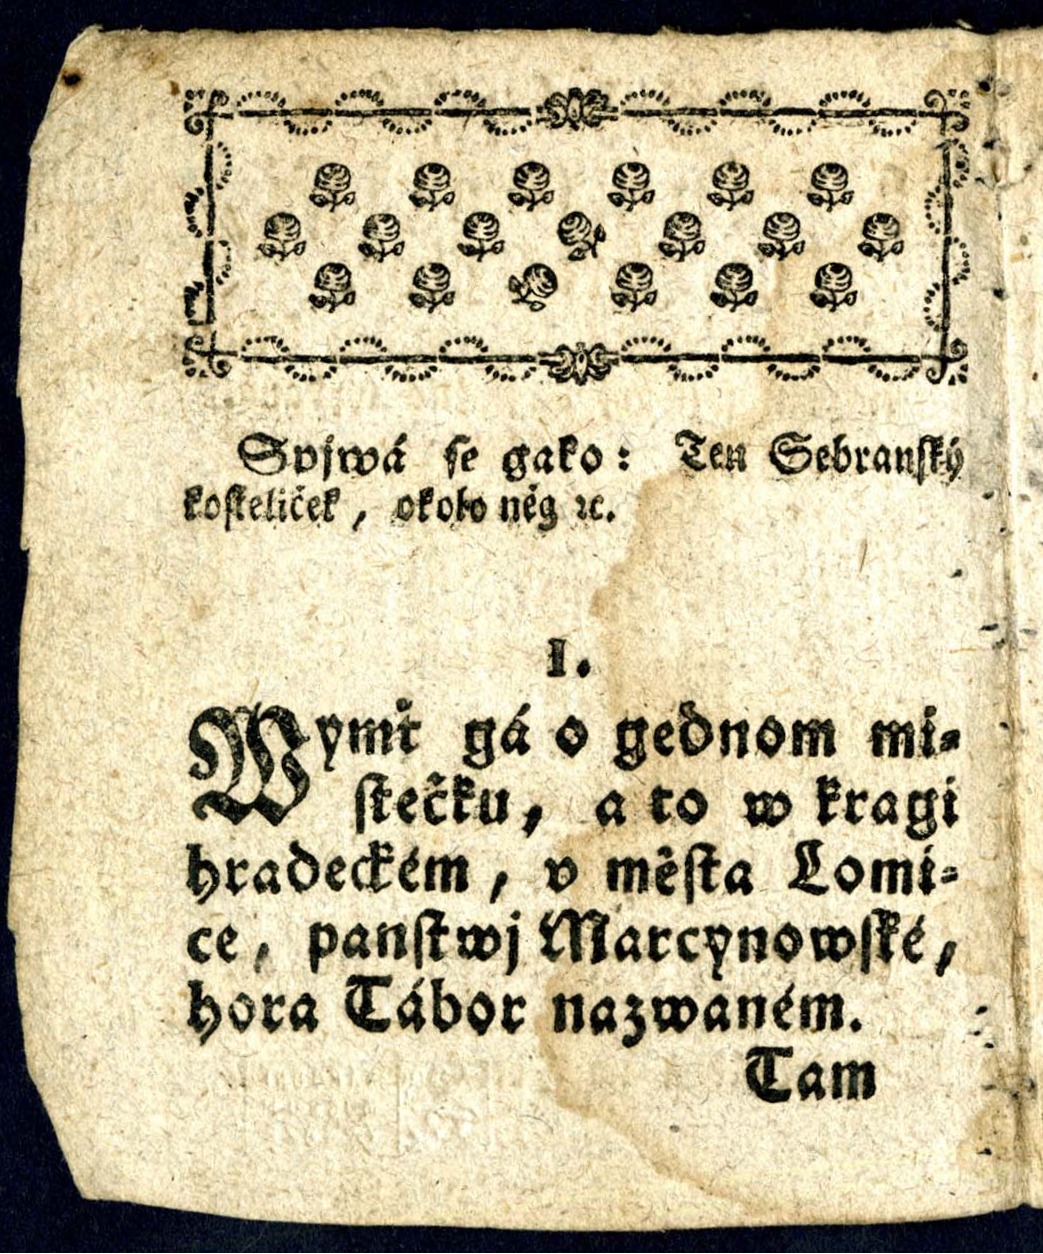 Spjwá ſe gako: Ten Sebranſký
koſteliček, okolo něg ꝛc.
I.
Wymť gá o gednom mi⸗
ſtečku, a to w kragi
hradeckém, v měſta Lomi⸗
ce, panſtwj Marcynowſké,
hora Tábor nazwaném.
Tam